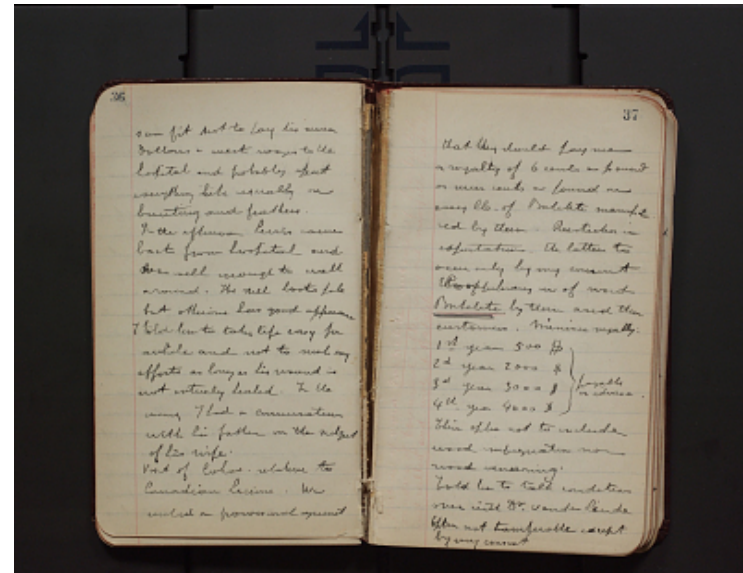 36
saw fit not to pay his
Dollars a week wages to the
hospital and probably spent
everything he equally on
and feathers.
In the afternoon came
back from hospital and
was well enough to walk
around. He still looks pale
but otherwise has good appearance
I told him to take life easy for
awhile and not to make any
efforts as long as his wound is
not entirely healed. In the
evening I had a conversation
with his father on the subject
of his wife.
Visit of relative to
Canadian License. We
made a provisional agreement
37
that they should pay me
a royalty of 6 cents a pound
or nine cents a pound on
every lb. of Bakelite manufactu
red by them. Restriction in
exportation. The latter to
occur only by my consent
use of word
Bakelite by them and their
customers. Minimum royalty:
1st year 500 $
2d year 2000 $
3d year 3000 $
4th year 4000 $
payable
in advance.
This offer not to include
wood impregnation nor
wood veneering.
Told him to talk conditions
over with Dr.
Offer not transferable except
by my consent